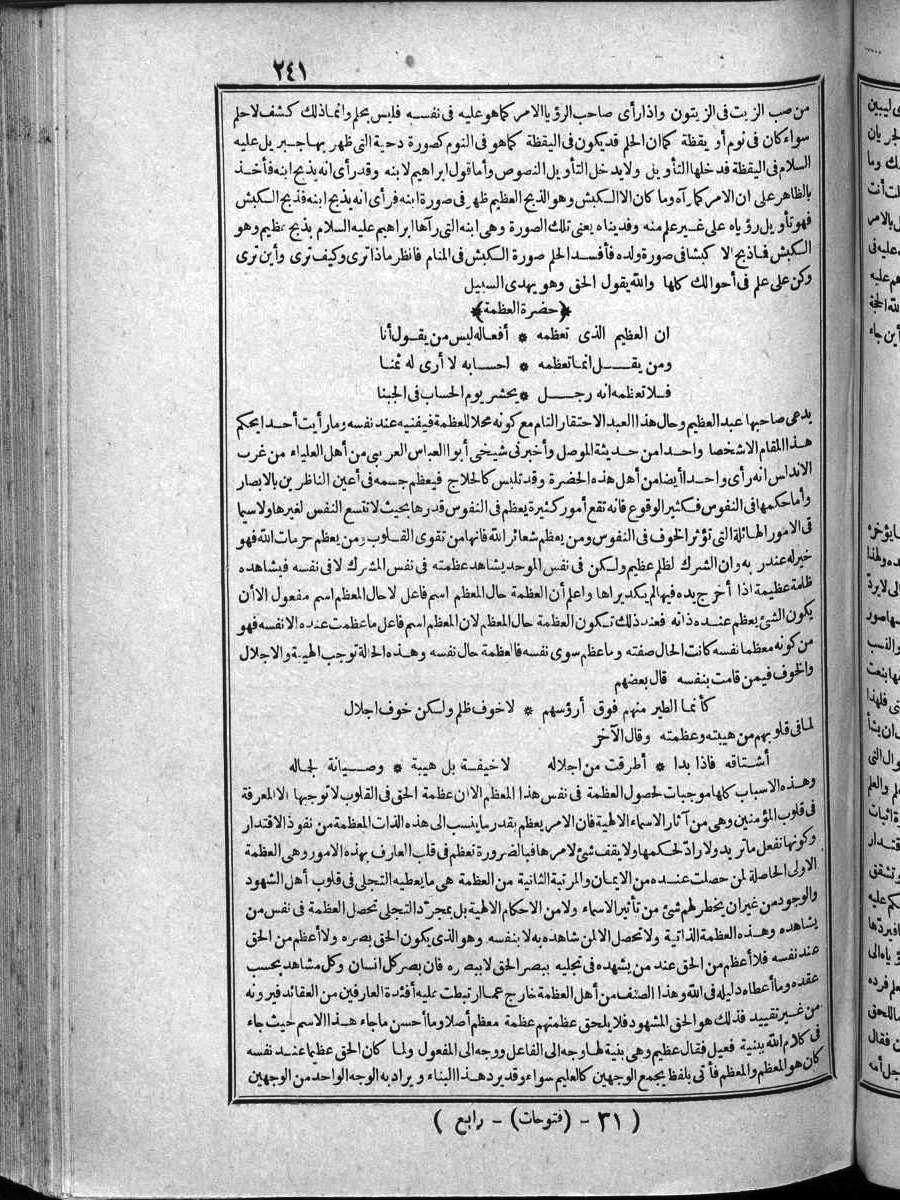 ٢٤١
من صب الزيت فى الزيتون واذا رأى صاحب الرؤيا الامر كما هو عليه فى نفسه فليس بحلم وانما ذلك كشف لا حلم
سواء كان فى نوم أو يقظة كما ان الحلم قد يكون فى اليقظة كما هو فى النوم كصورة دحية التى ظهر بها جبريل عليه
السلام فى اليقظة فدخلها التأويل ولا يدخل التأويل النصوص وأما قول ابراهيم لابنه وقد رأى انه يذبح ابنه فأخذ
بالظاهر على ان الامر كما رآه وما كان الا الكبش وهو الذبح العظيم ظهر فى صورة ابنه فرأى انه يذبح ابنه فذبح الكبش
فهو تأويل رؤياه على غير علم منه وفديناه يعنى تلك الصورة وهى ابنه التى رآها ابراهيم عليه السلام بذبح عظيم وهو
الكبش فما ذبح الا كبشا فى صورة ولده فأفسد الحلم صورة الكبش فى المنام فانظر ماذا ترى وكيف ترى وأين ترى
وكن على علم فى أحوالك كلها والله يقول الحق وهو يهدى السبيل
﴿حضرة العظمة﴾
ان العظيم الذى تعظمه * أفعاله ليس من يقول أنا
ومن يقل انما تعظمه * احسابه لا أرى له ثمنا
فلا تعظمه انه رجل * يحشر يوم الحساب فى الجبنا
يدعى صاحبها عبد العظيم وحال هذا العبد الاحتقار التام مع كونه محلا للعظمة فيفنيه عند نفسه وما رأيت أحدا يحكم
هذا المقام الا شخصا واحدا من حديثة الموصل وأخبرنى شيخى أبو العباس العريبى من أهل العلياء من غرب
الاندلس انه رأى واحدا أيضا من أهل هذه الحضرة وقد تلبس كالحلاج فيعظم جسمه فى أعين الناظرين بالابصار
وأما حكمها فى النفوس فكثير الوقوع فانه تقع أمور كثيرة يعظم فى النفوس قدرها بحيث لا تتسع النفس لغيرها ولا سيما
فى الامور الهائلة التى تؤثر الخوف فى النفوس ومن يعظم شعائر الله فانها من تقوى القلوب ومن يعظم حرمات الله فهو
خير له عند ربه وان الشرك لظلم عظيم ولكن فى نفس الموحد يشاهد عظمته فى نفس المشرك لا فى نفسه فيشاهده
ظلمة عظيمة اذا أخرج يده فيها لم يكد يراها واعلم أن العظمة حال المعظم اسم فاعل لا حال المعظم اسم مفعول الا أن
يكون الشئ يعظم عنده ذاته فعند ذلك تكون العظمة حال المعظم لان المعظم اسم فاعل ما عظمت عنده الا نفسه فهو
من كونه معظما نفسه كانت الحال صفته وما عظم سوى نفسه فالعظمة حال نفسه وهذه الحالة توجب الهيبة والاجلال
والخوف فيمن قامت بنفسه قال بعضهم
كأنما الطير منهم فوق أرؤسهم * لا خوف ظلم ولكن خوف اجلال
لما فى قلوبهم من هيبته وعظمته وقال الآخر
أشتاقه فاذا بدا * أطرقت من اجلاله لا خيفة بل هيبة * وصيانة لجماله
وهذه الاسباب كلها موجبات لحصول العظمة فى نفس هذا المعظم الا ان عظمة الحق فى القلوب لا توجبها الا المعرفة
فى قلوب المؤمنين وهى من آثار الاسماء الالهية فان الامر يعظم بقدر ما ينسب الى هذه الذات المعظمة من نفوذ الاقتدار
وكونها تفعل ما تريد ولا راد لحكمها ولا يقف شئ لامرها فبالضرورة تعظم فى قلب العارف بهذه الامور وهى العظمة
الاولى الحاصلة لمن حصلت عنده من الايمان والمرتبة الثانية من العظمة هى ما يعطيه التجلى فى قلوب أهل الشهود
والوجود من غير ان يخطر لهم شئ من تأثير الاسماء ولا من الاحكام الالهية بل بمجرد التجلى تحصل العظمة فى نفس من
يشاهده وهذه العظمة الذاتية ولا تحصل الا لمن شاهده به لا بنفسه وهو الذى يكون الحق بصره ولا أعظم من الحق
عند نفسه فلا أعظم من الحق عند من يشهده فى تجليه ببصر الحق لا ببصره فان بصر كل انسان وكل مشاهد بحسب
عقده وما أعطاه دليله فى الله وهذا الصنف من أهل العظمة خارج عما ارتبطت عليه أفئدة العارفين من العقائد فيرونه
من غير تقييد فذلك هو الحق المشهود فلا يلحق عظمتهم عظمة معظم أصلا وما أحسن ما جاء هذا الاسم حيث جاء
فى كلام الله ببنية فعيل فقال عظيم وهى بنية لها وجه الى الفاعل ووجه الى المفعول ولما كان الحق عظيما عند نفسه
كان هو المعظم والمعظم فأتى بلفظ يجمع الوجهين كالعليم سواء وقد يرد هذا البناء ويراد به الوجه الواحد من الوجهين
( ٣١ - (فتوحات) - رابع )